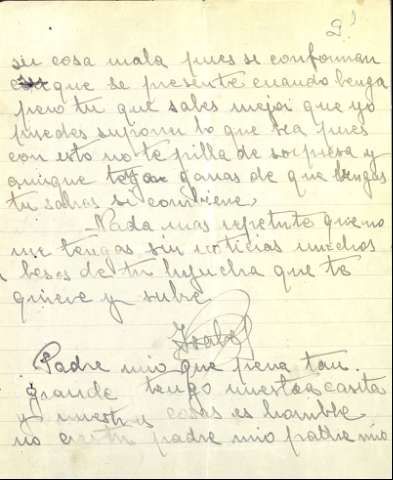 2º
sin cosa mala pues se conforman
con que se presente cuando benga
pero tu que sabes mejor que yo
puedes suponer lo que sea pues
con esto no te pilla de sorpresa y
aunque tengan ganas de que bengas
tu sabras si conbiene,
-Nada mas repetirte que no
me tengas sin noticias muchos
besos de tu hijucha que te
quiere y sufre
Isabel
Padre mio que pena tan
grande tengo nuestra casita
y nuestras cosas es horrible
no padre mio padre mio